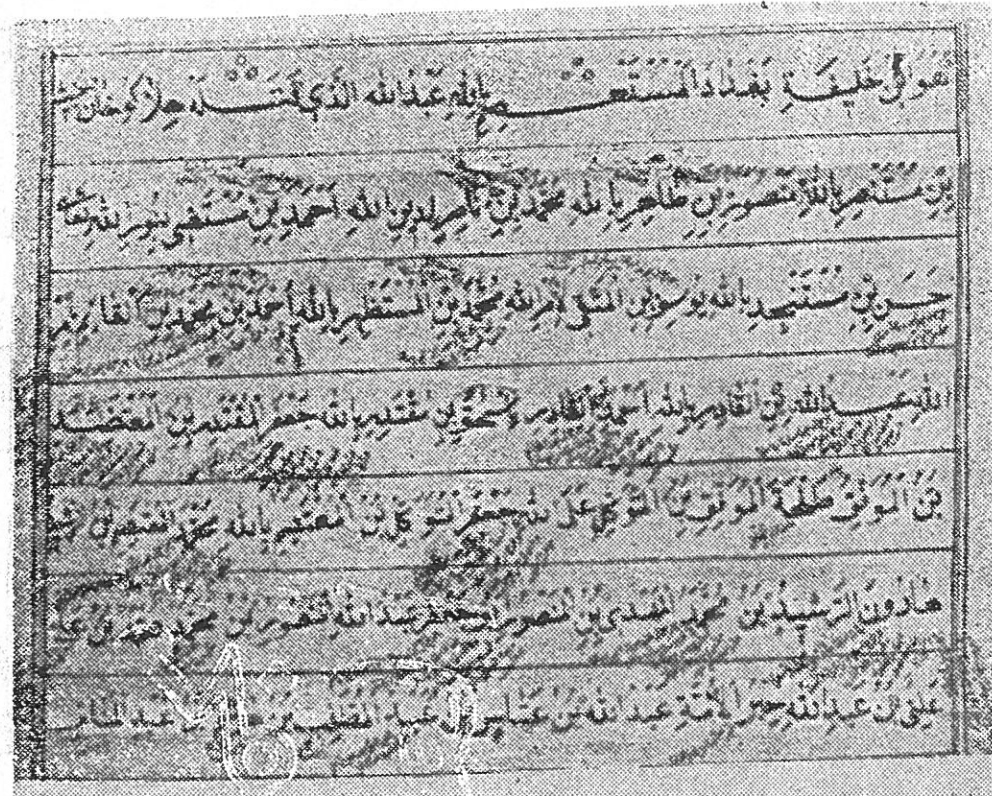 خليفة بغداد المستعصم بالله عبدالله الذي قتله هلاكو خان
بن مستنصر بالله منصور بن طاهر بالله محمد بن ناصر لدين الله احمد بن مستضی بنور الله
حسن بن مستنجد بالله يوسف بن المتقی لامر الله محمد بن المستظهر بالله أحمد بن محمد بن
الله عبد الله بن القادر بالله احمد القادر بن مقتدر بالله جعفر المقتدر بن المعتضد
بن الموفق طلحة الموفق بن المتوكل على لله جعفر المتوكل بن المعتصم بالله محمد المعتصم بن
هارون الرشيد بن محمد المهدی بن المنصور ابو جعفر عبد الله المنصور بن محمد بن
علی بن عبد الله حبر الامة عبد الله بن عباس بن عبد المطلب بن بن عبد المناف